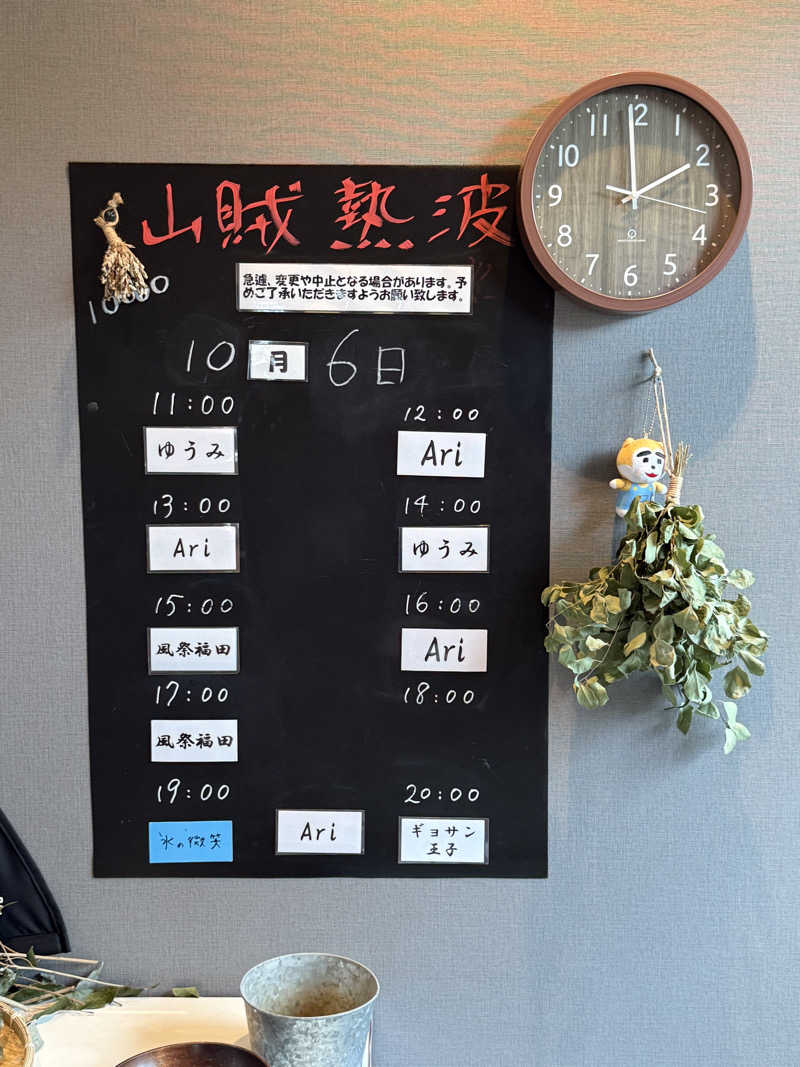 山賊 熱波
急遽、変更や中止となる場合があります。予
めご了承いただきますようお願い致します。
10 月 6日
11:00
ゆうみ
12:00
Ari
13:00
Ari
14:00
ゆうみ
15:00
風祭福田
16:00
Ari
17:00
風祭福田
18:00
19:00
氷の微笑
Ari
20:00
ギョサン
王子
12
1
2
3
4
5
6
8
9
10
11